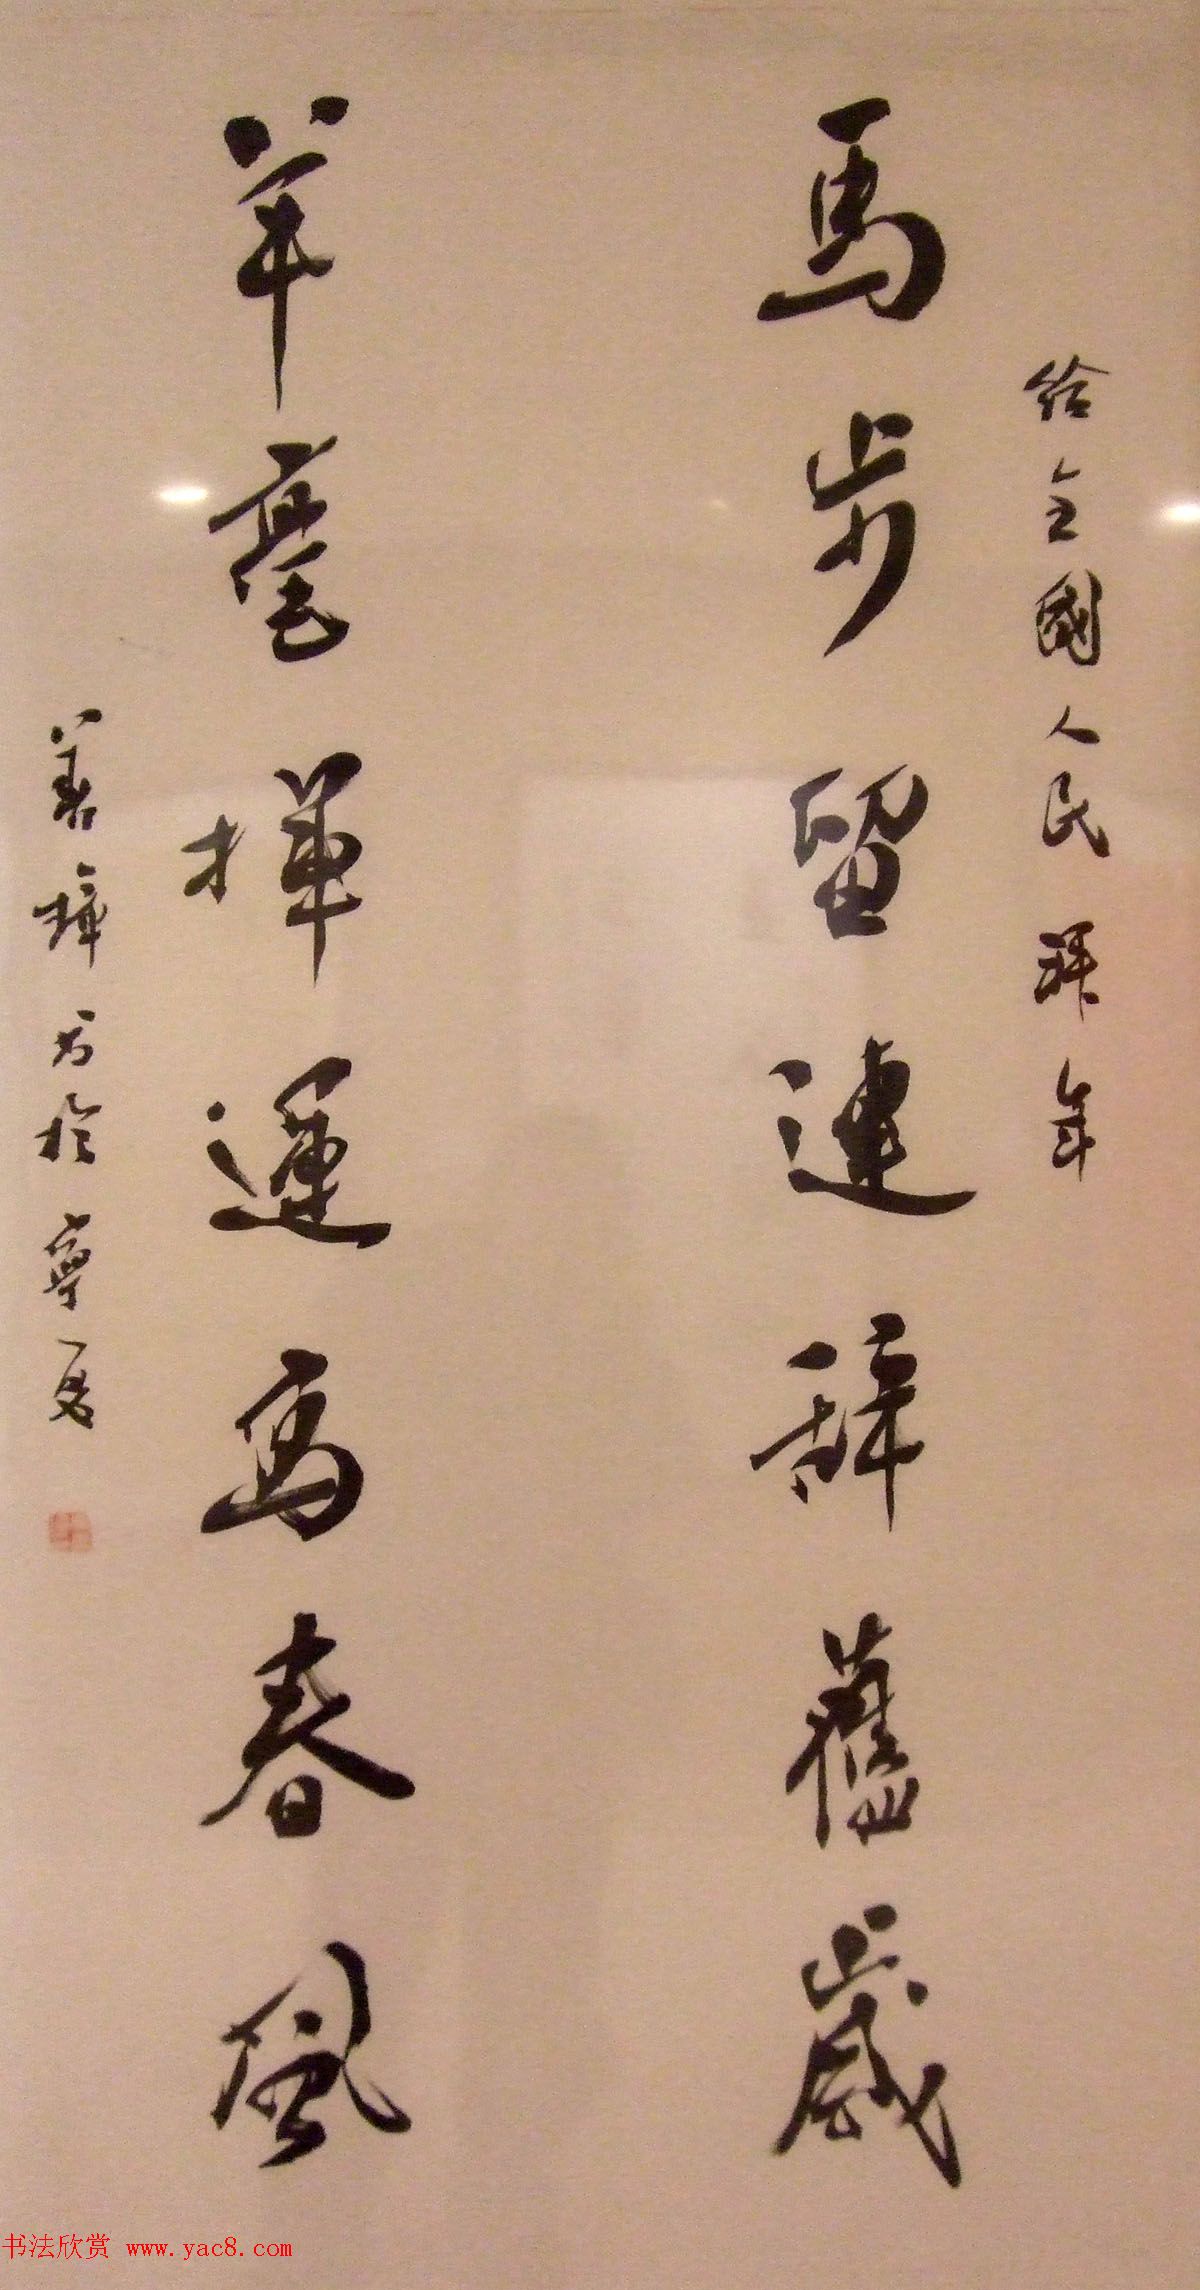 給全國人民拜年
馬步留連辞舊歲
羊毫揮運寫春風
善璋书於寧夏
书法欣赏 www.yac8.com